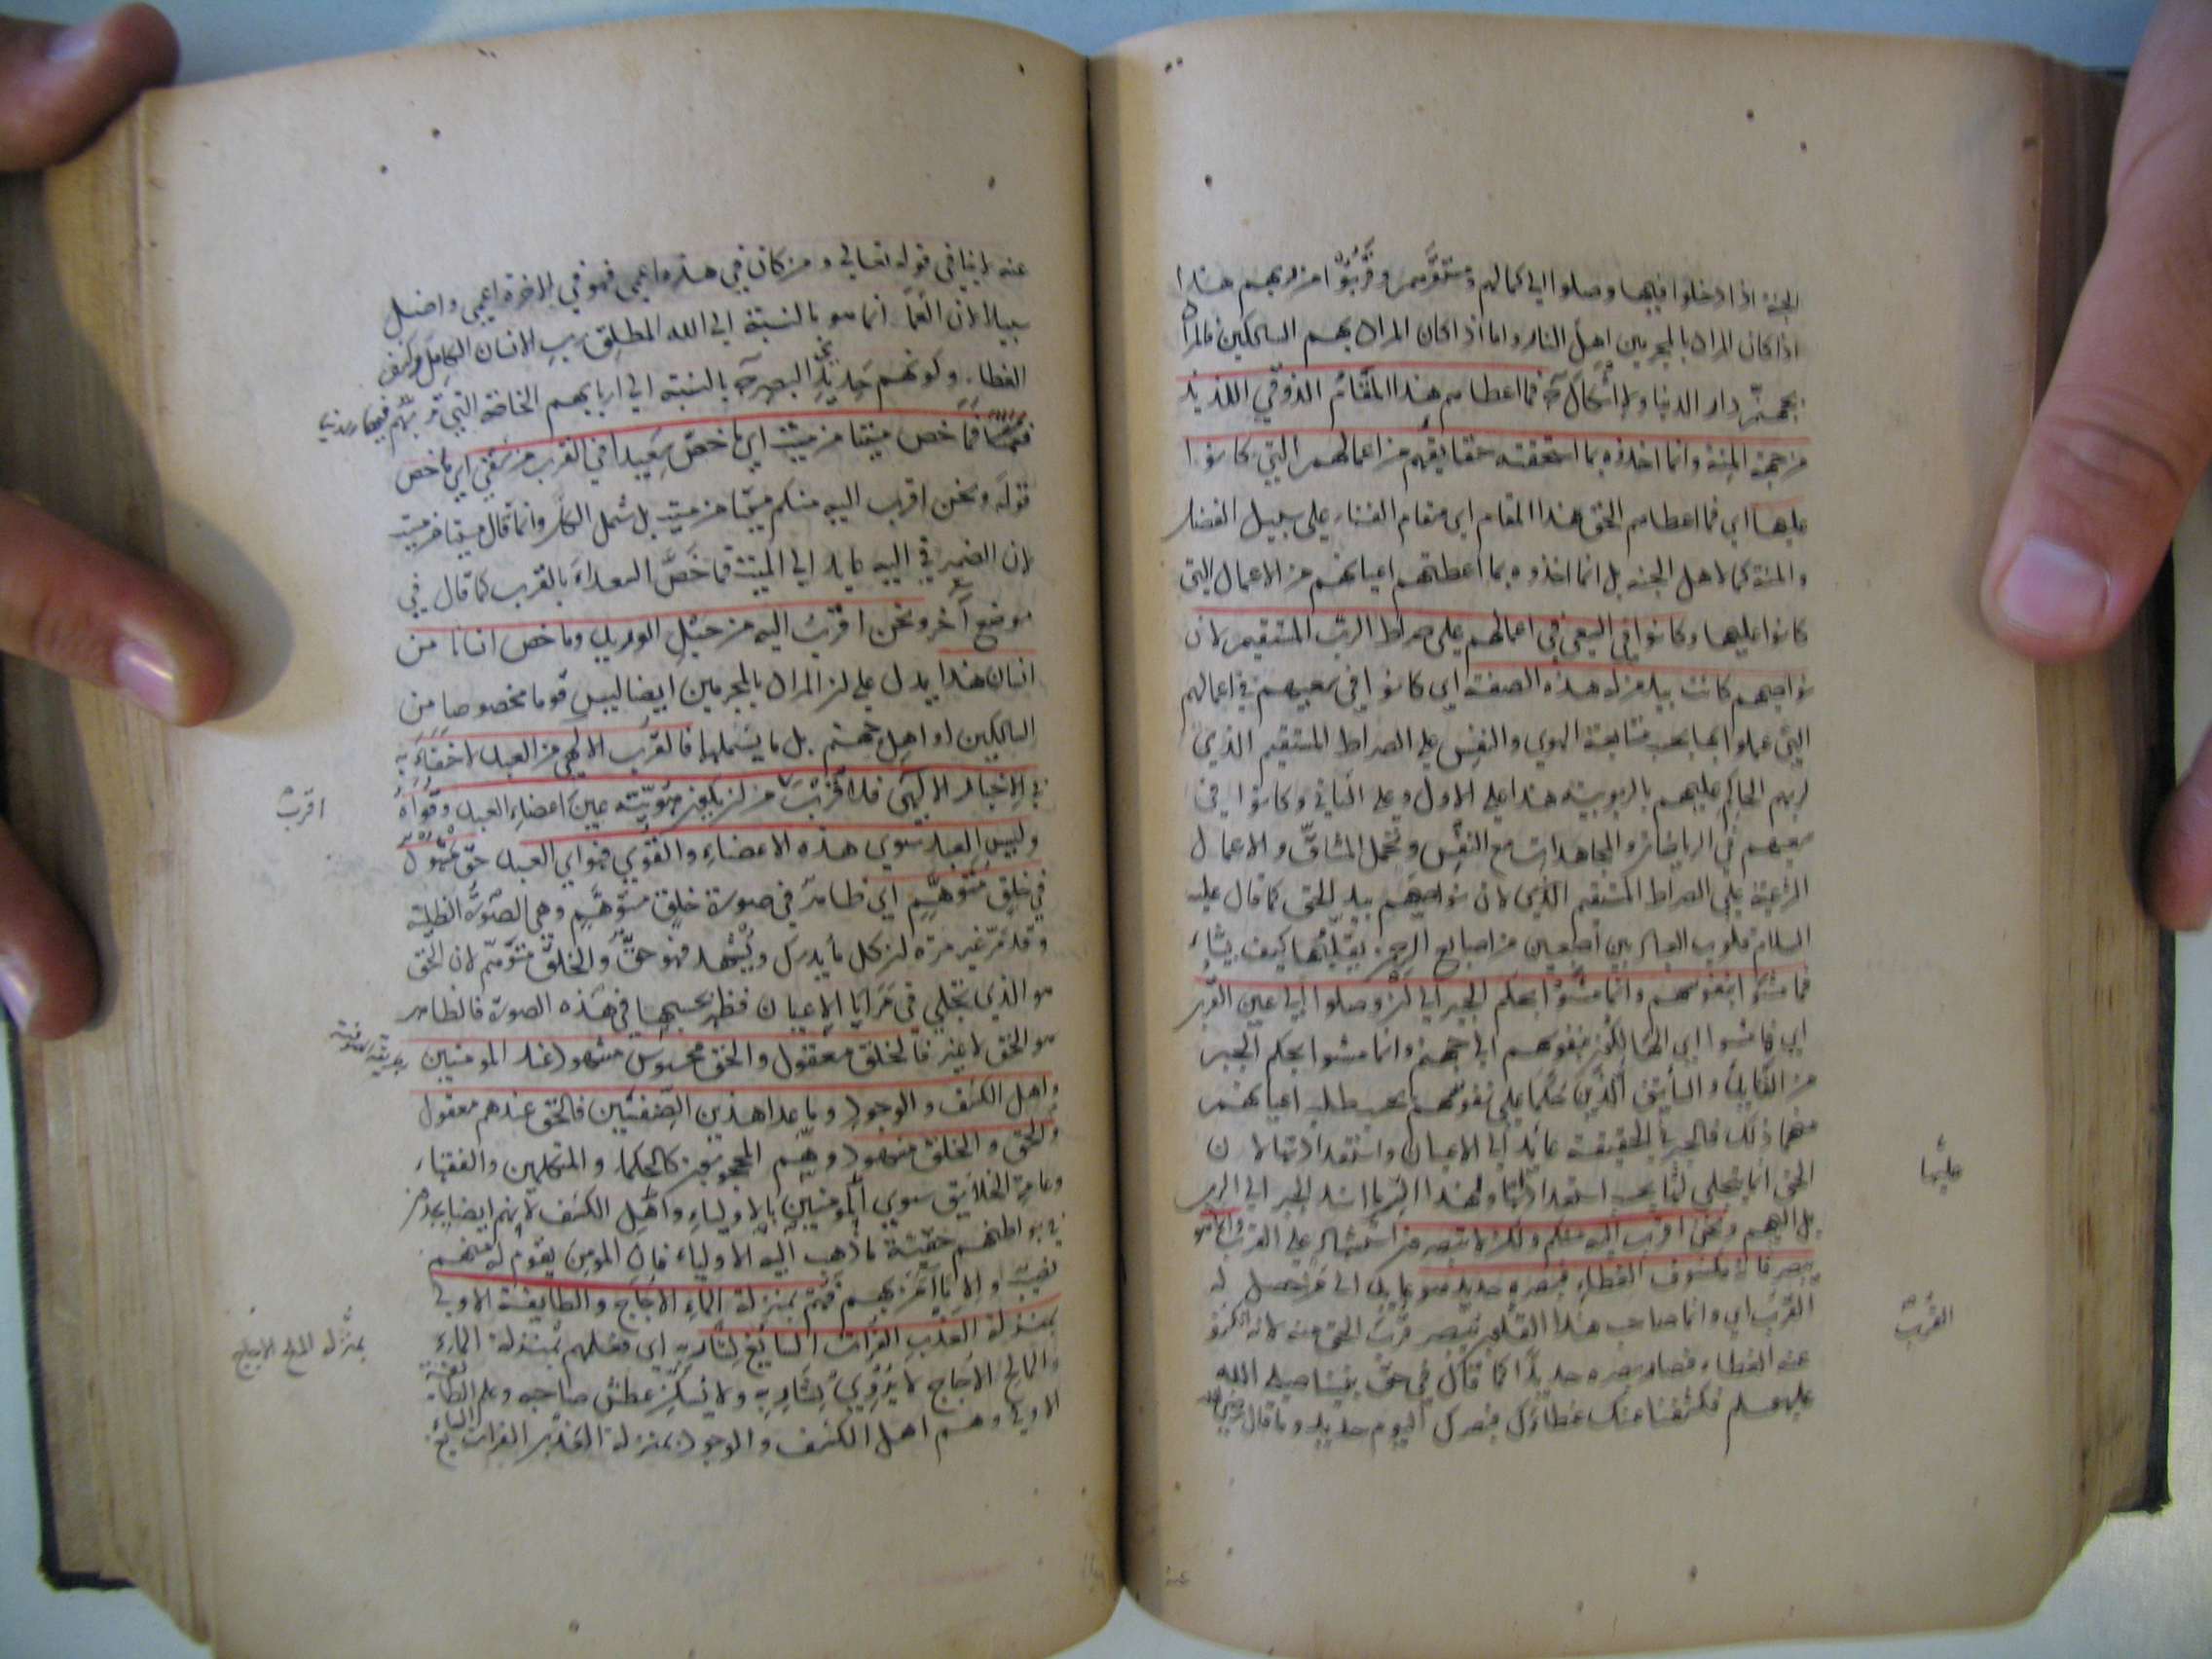 الجنة اذا دخلوا فيها وصلوا الى كمالهم ومستقرهم وقربوا من ربهم هذا
اذا كان المراد بالمجرمين اهل النار واما اذا كان المراد بهم السالكين فالمراد
بجهنم دار الدنيا ولا اشكال فما اعطاهم هذا المقام الذوقي اللذيذ
من جهة المنة وانما اخذوه بما استحقته حقايقهم من اعمالهم التي كانوا
عليها اي فما اعطاهم الحق هذا المقام اي مقام الفناء على سبيل الفضل
والمنة كما لاهل الجنة بل انما اخذوه بما اعطتهم اعيانهم من الاعمال التي
كانوا عليها وكانوا في السعي في اعمالهم على صراط الرب المستقيم لان
نواصيهم كانت بيد من له هذه الصفة اي كانوا في سعيهم في اعمالهم
التي عملوا بها بحسب متابعة الهوي والنفس على الصراط المستقيم الذي
لربهم الحاكم عليهم بالربوبية هذا على الاول وعلى الثاني وكانوا في
سعيهم في الرياضات والمجاهدات مع النفس وتحمل المشاق والاعمال
الشرعية على الصراط المستقيم الذي لان نواصيهم بيد الحق كما قال عليه
السلام قلوب العباد بين اصبعين من اصابع الرحمن يقلبها كيف يشاء
فما مشوا بنفوسهم وانما مشوا بحكم الجبر الى ان وصلوا الى عين القرب
اي فما مشوا اي الهالكون بنفوسهم الى جهنم وانما مشوا بحكم الجبر
من القايد والسايق الذين حكما على نفوسهم بحسب طلب اعيانهم
منهما ذلك فالجبر في الحقيقة عايد الى الاعيان واستعداداتها لان
الحق انما يتجلي لها بحسب استعداداتها ولهذا السر ما اسند الجبر الى الرب
بل اليهم ونحن اقرب اليه منكم ولكن لا تبصرون استشهاد على القرب وانما هو
يبصر فانه مكشوف الغطاء فبصره حديد هو عايد الى من حصل له
القرب اي وانما صاحب هذا القلب يبصر قرب الحق منه لانه انكشف
عنه الغطاء فصار بصره حديدا كما قال في حق نبينا صلى الله
عليه وسلم فكشفنا عنك غطاءك فبصرك اليوم حديد وما قال
عليها
القرب
عنه لا ينافي قوله تعالى ومن كان في هذه اعمي فهو في الاخرة اعمي واضل
سبيلا لان العما انما هو بالنسبة الى الله المطلق رب الانسان الكامل وكشف
الغطاء وكونهم حديد البصر بالنسبة الى اربابهم الخاصة التي تربهم فيها
فما خص ميتا من ميت اي ما خص سعيدا في القرب من شقي اي ما خص
قوله ونحن اقرب اليه منكم ميتا من ميت بل شمل الكل وانما قال ميتا من ميت
لان الضمير في اليه عايد الى الميت فما خص السعداء بالقرب كما قال في
موضع آخر ونحن اقرب اليه من حبل الوريد وما خص انسانا من
انسان هذا يدل على ان المراد بالمجرمين ايضا ليس قوما مخصوصا من
السالكين او اهل جهنم بل ما يشملها فالقرب الالهي من العبد لا خفاء به
في الاخبار الالهي فلا قرب اقرب من ان يكون هويته عين اعضاء العبد وقواه
وليس العبد سوى هذه الاعضاء والقوى فهو اي العبد حق مشهود
في خلق متوهم اي ظاهر في صورة خلق متوهم وهي الصورة الظلية
وقد مر غير مرة ان كل ما يدرك ويشهد فهو حق والخلق متوهم لان الحق
هو الذي تجلي في مرايا الاعيان فظهر بحسبها في هذه الصورة فالظاهر
هو الحق لا غير فالخلق معقول والحق محسوس مشهود عند المومنين
واهل الكشف والوجود وما عدا هذين الصنفين فالحق عندهم معقول
والخلق مشهود وهم المحجوبون كالحكماء والمتكلمين والفقهاء
وعامة الخلايق سوى المومنين بالاولياء واهل الكشف لانهم ايضا يجدون
في بواطنهم حقية ما ذهب اليه الاولياء فان المومن يقوم له منهم
نصيب والا ما آمن بهم فهم بمنزلة الماء الاجاج والطايفة الاولى
بمنزلة العذب الفرات السايغ لشاربه اي فعلمهم بمنزلة الماء
المالح الاجاج لا يروي لشاربه ولا يسكن عطش صاحبه وعلم الطايفة
الاولى وهم اهل الكشف والوجود بمنزلة العذب الفرات السايغ
اقرب
بمنزلة الملح الاجاج